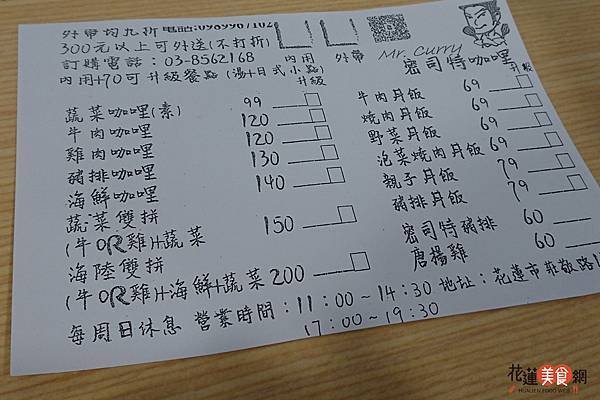 外帶均九折 電話:0989967102
300元以上可外送(不打折)
訂購電話：03-8562168
內用+70可升級餐點(湯+日式小點)
內用
外帶
Mr. Curry
密司特咖哩
升級
蔬菜咖哩(素) 99
牛肉咖哩 120
雞肉咖哩 120
豬排咖哩 130
海鮮咖哩 140
蔬菜雙拼
(牛OR雞)+蔬菜 150
海陸雙拼
(牛OR雞)+海鮮+蔬菜 200
升級
牛肉丼飯 69
燒肉丼飯 69
野菜丼飯 69
泡菜燒肉丼飯 69
親子丼飯 79
豬排丼飯 79
密司特豬排 60
唐揚雞 60
每周日休息 營業時間：11:00～14:30 地址：花蓮市莊敬路
17:00～19:30
花蓮美食網
HUALIEN FOOD WEB